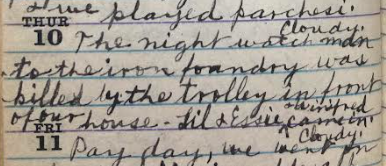 & we played parchesi.
THUR
10 Cloudy.
The night watchman
to the iron foundry was
killed by the trolley in front
of our house - Lil & Essie & Winifred
came in.
FRI
11 Cloudy.
Pay day, we went in